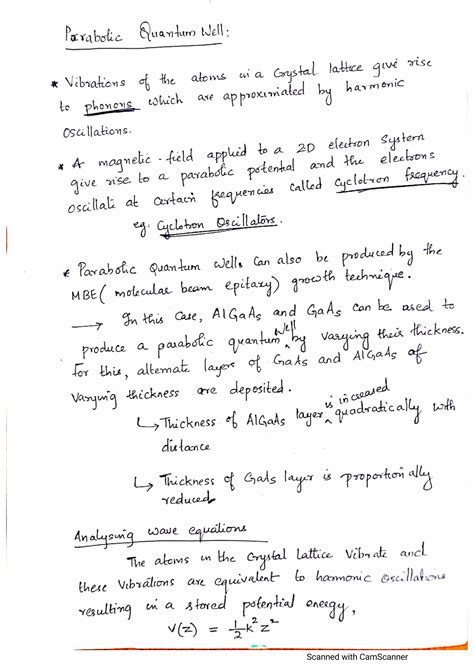 Parabolic Quantum Well:
* Vibrations of the atoms in a Crystal lattice give rise
to phonons which are approximated by harmonic
Oscillations.
* A magnetic-field applied to a 2D electron System
give rise to a parabolic potential and the electrons
oscillate at certain frequencies called Cyclotron frequency.
eg: Cyclotron Oscillators.
* Parabolic Quantum Wells Can also be produced by the
MBE (molecular beam epitary) growth technique.
→ In this Case, AlGaAs and GaAs Can be used to
produce a parabolic quantum well by varying their thickness.
For this, alternate layers of GaAs and AlGaAs of
Varying thickness are deposited.
↳ Thickness of AlGaAs layer is increased quadratically with
distance
↳ Thickness of GaAs layer is proportionally
reduced
Analysing wave equations
The atoms in the Crystal lattice Vibrate and
these Vibrations are equivalent to harmonic oscillations
resulting in a stored potential energy,
V(z) = 1/2 k² z²
Scanned with CamScanner